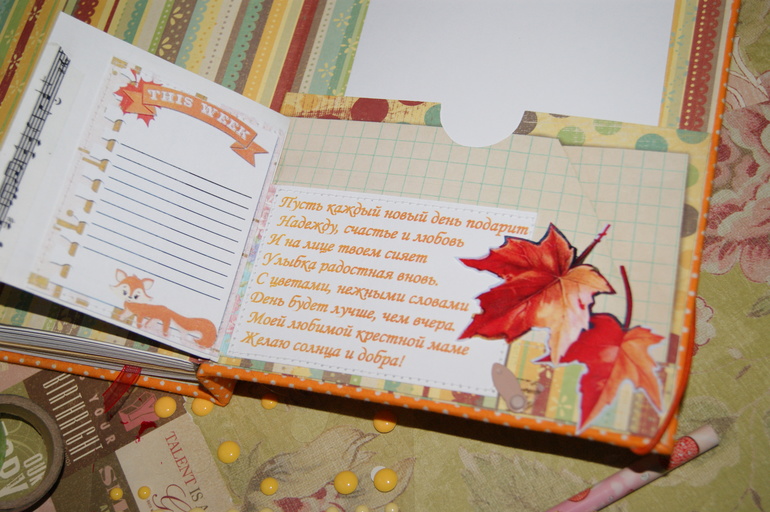 THIS WEEK
Пусть каждый новый день подарит
Надежду, счастье и любовь
И на лице твоем сияет
Улыбка радостная вновь.
С цветами, нежными словами
День будет лучше, чем вчера.
Моей любимой крестной маме
Желаю солнца и добра!
YOUR
BIRTHRIGHT
TALENT IS A
OUR